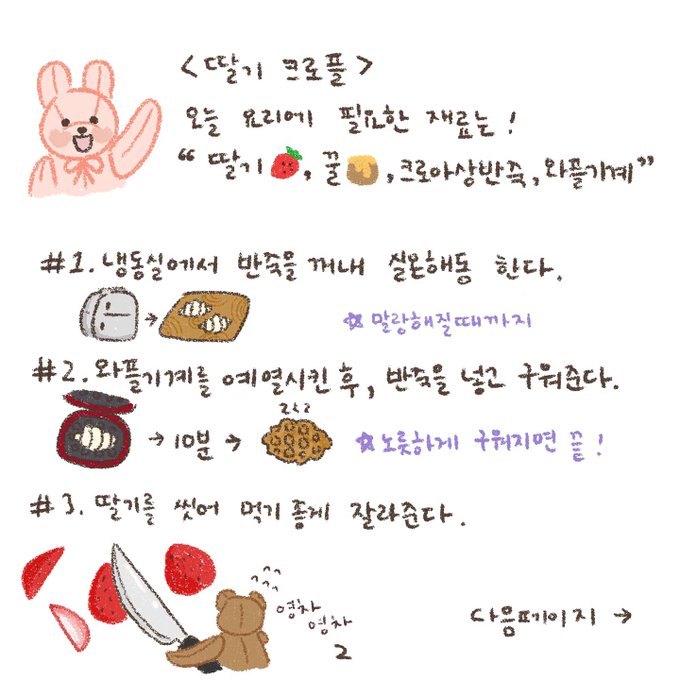 <딸기 크로플>
오늘 요리에 필요한 재료는!
"딸기, 꿀, 크로아상반죽, 와플기계"
#1. 냉동실에서 반죽을 꺼내 실온해동 한다.
☆ 말랑해질때까지
#2. 와플기계를 예열시킨 후, 반죽을 넣고 구워준다.
→ 10분 →
☆ 노릇하게 구워지면 끝!
#3. 딸기를 씻어 먹기좋게 잘라준다.
영차
영차
2
다음페이지 →